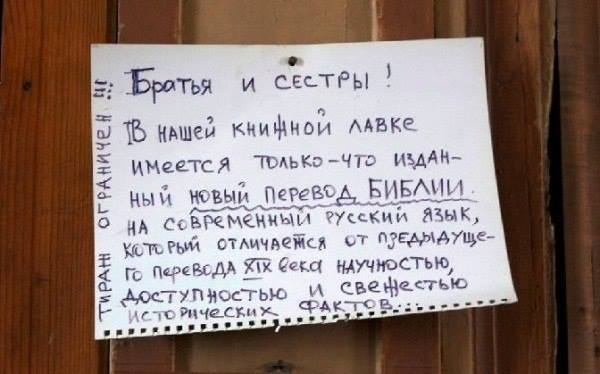 Братья и сестры!
В нашей книжной лавке
имеется только-что издан-
ный новый перевод БИБЛИИ
на современный русский язык,
который отличается от предыдуще-
го перевода XIX века научностью,
доступностью и свежестью
исторических фактов...
Тираж ограничен!!!